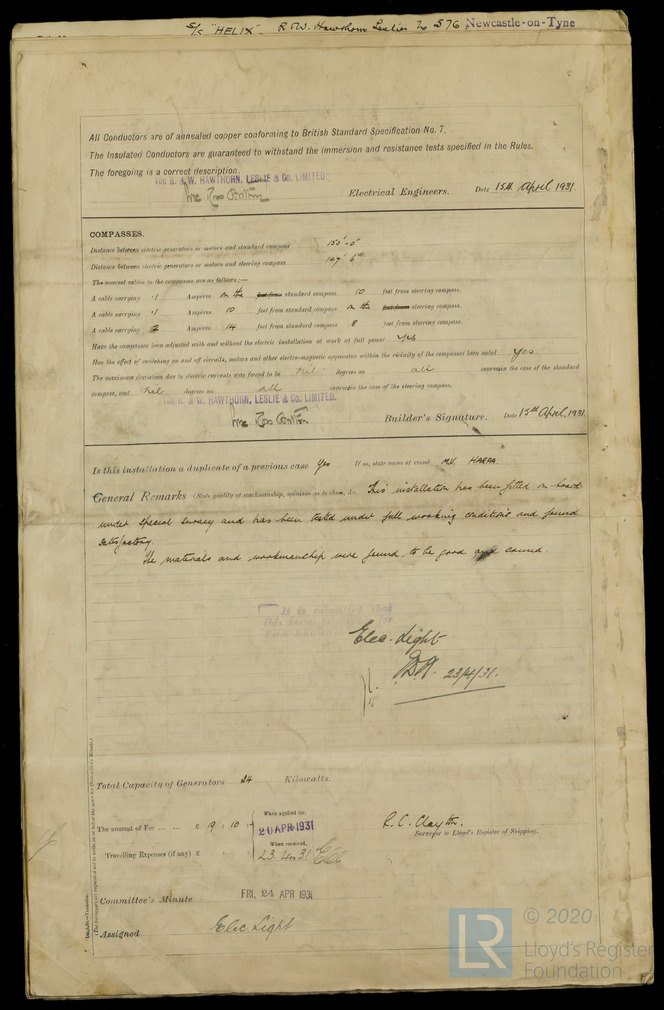 S/S "HELIX". R & W. Hawthorn Leslie No 576 Newcastle-on-Tyne
All Conductors are of annealed copper conforming to British Standard Specification No. 7.
The Insulated Conductors are guaranteed to withstand the immersion and resistance tests specified in the Rules.
The foregoing is a correct description.
FOR R. & W. HAWTHORN, LESLIE & Co. LIMITED.
Electrical Engineers. Date 15th April 1931.
COMPASSES.
Distance between electric generators or motors and standard compass 150'-0"
Distance between electric generators or motors and steering compass 147' 6"
The nearest cables to the compasses are as follows:—
A cable carrying .1 Ampères on the feet from standard compass 10 feet from steering compass.
A cable carrying .1 Ampères 10 feet from standard compass on the feet from steering compass.
A cable carrying 2 Ampères 14 feet from standard compass 8 feet from steering compass.
Have the compasses been adjusted with and without the electric installation at work at full power Yes
Has the effect of switching on and off circuits, motors and other electro-magnetic apparatus within the vicinity of the compasses been noted Yes
The maximum deviation due to electric currents was found to be Nil degrees on all course in the case of the standard
compass, and Nil degrees on all course in the case of the steering compass.
FOR R. & W. HAWTHORN, LESLIE & Co. LIMITED.
Builder's Signature. Date 15th April, 1931.
Is this installation a duplicate of a previous case Yes If so, state name of vessel M.V. HARPA.
General Remarks (State quality of workmanship, opinions as to them, &c. This installation has been fitted on board
under special survey and has been tested under full working conditions and found
satisfactory.
The materials and workmanship were found to be good and sound.
It is submitted that
this
Elec. Light
23/4/31.
Total Capacity of Generators 24 Kilowatts.
The amount of Fee ... ... £ 19 : 10 : When applied for, 20 APR 1931
R. C. Clayton.
Surveyor to Lloyd's Register of Shipping.
Travelling Expenses (if any) £ When received, 23. 4. 31
Committee's Minute FRI. 24 APR 1931
Assigned Elec Light
LR © 2020
Lloyd's Register
Foundation